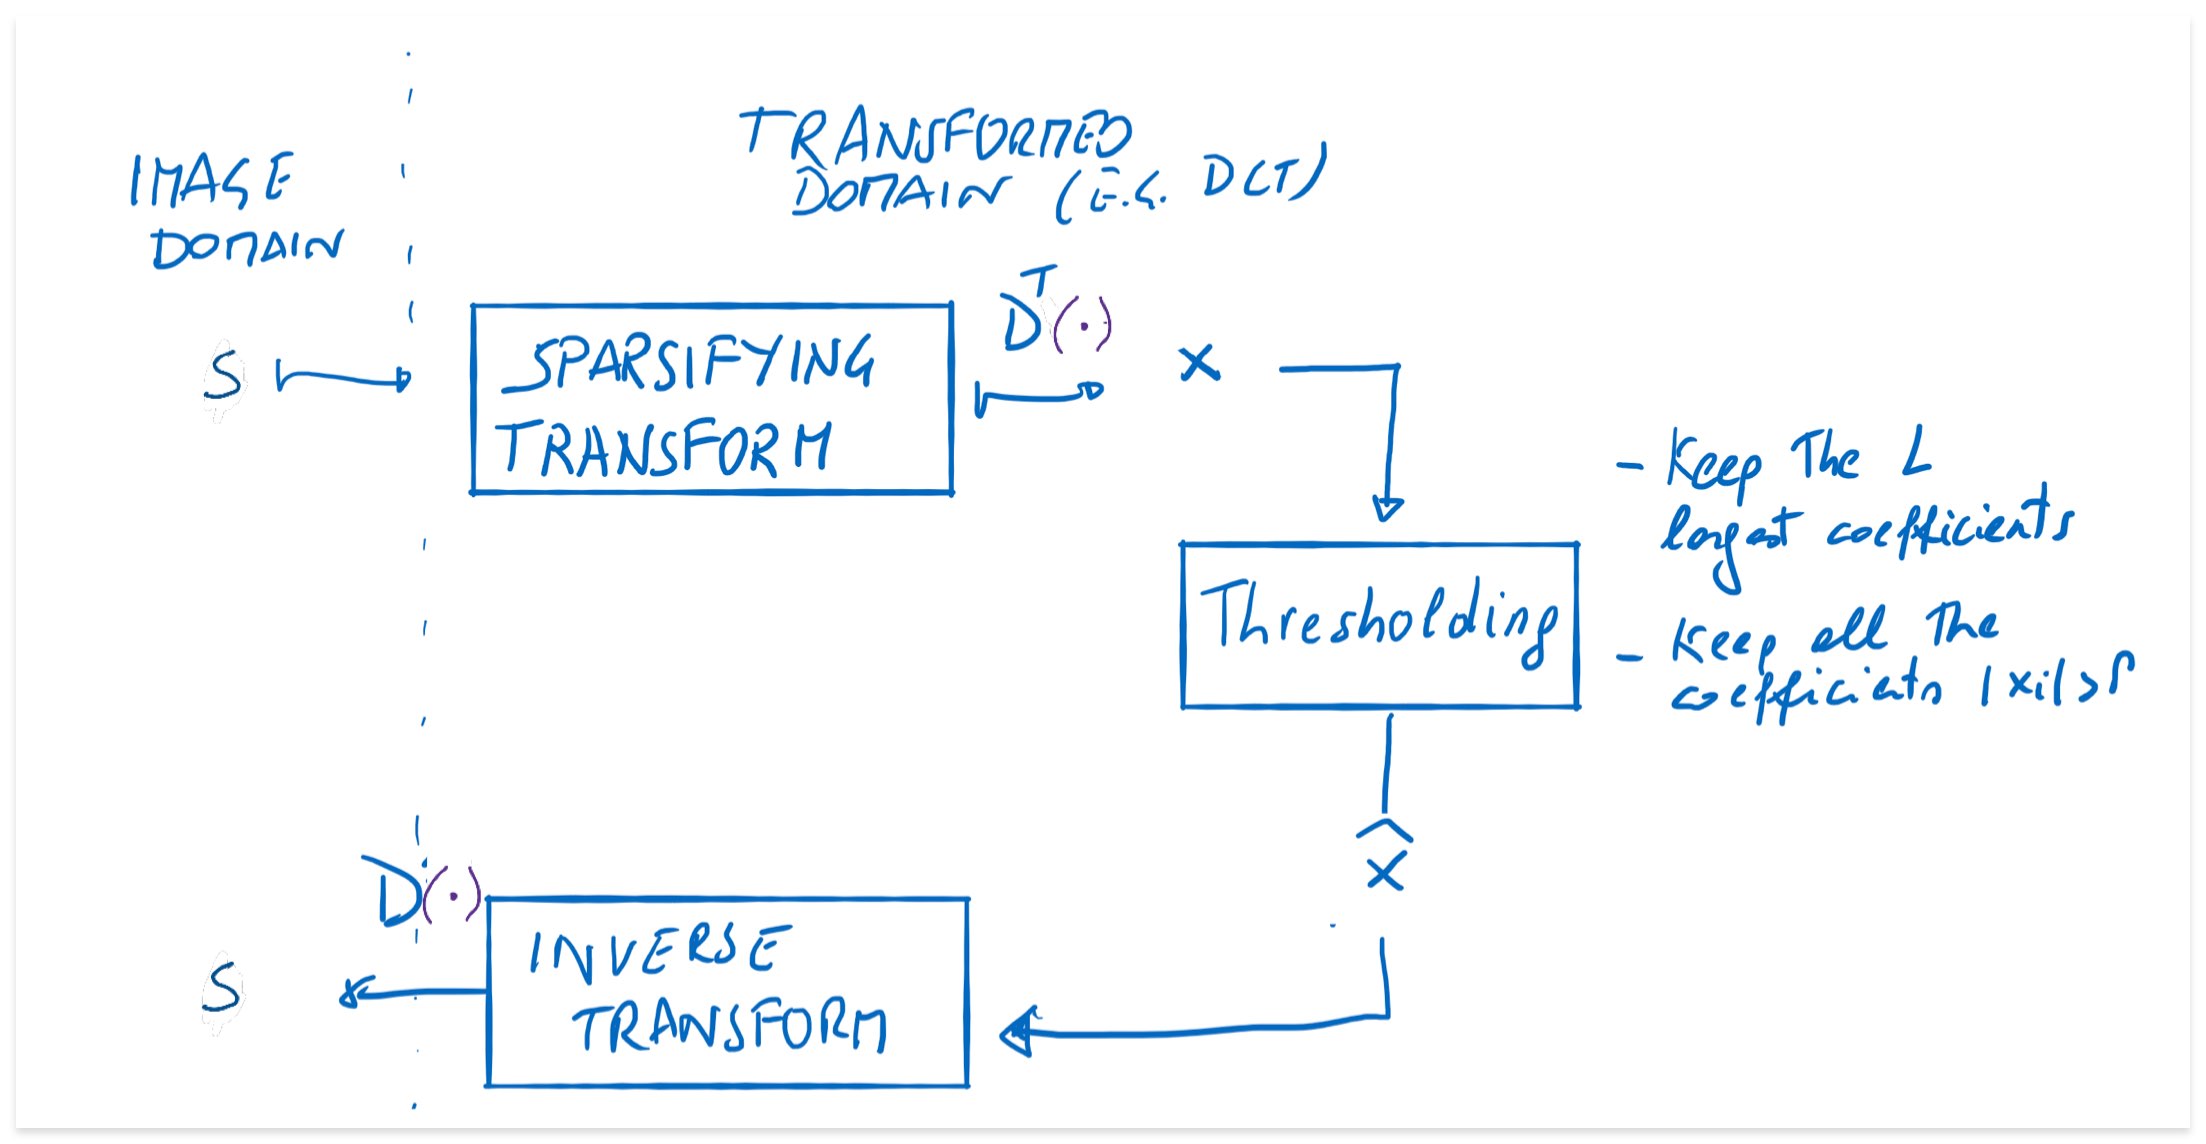 IMAGE
DOMAIN
TRANSFORMED
DOMAIN (E.G. DCT)
S
SPARSIFYING
TRANSFORM
D^T(·)
x
- Keep The L
largest coefficients
Thresholding
- Keep all The
coefficients |xi|>
x̂
D(·)
INVERSE
TRANSFORM
S